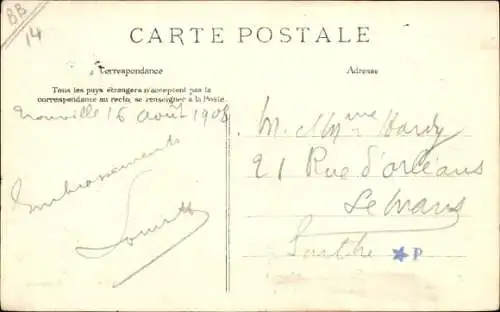 8B
14
CARTE POSTALE
Correspondance
Adresse
Tous les pays étrangers n'acceptent pas la
correspondance au recto, se renseigner à la Poste.
Trouville 16 Août 1908
Embrassements
M. et Mme Hardy
21 Rue d'orléans
Le Mans
Sarthe
P